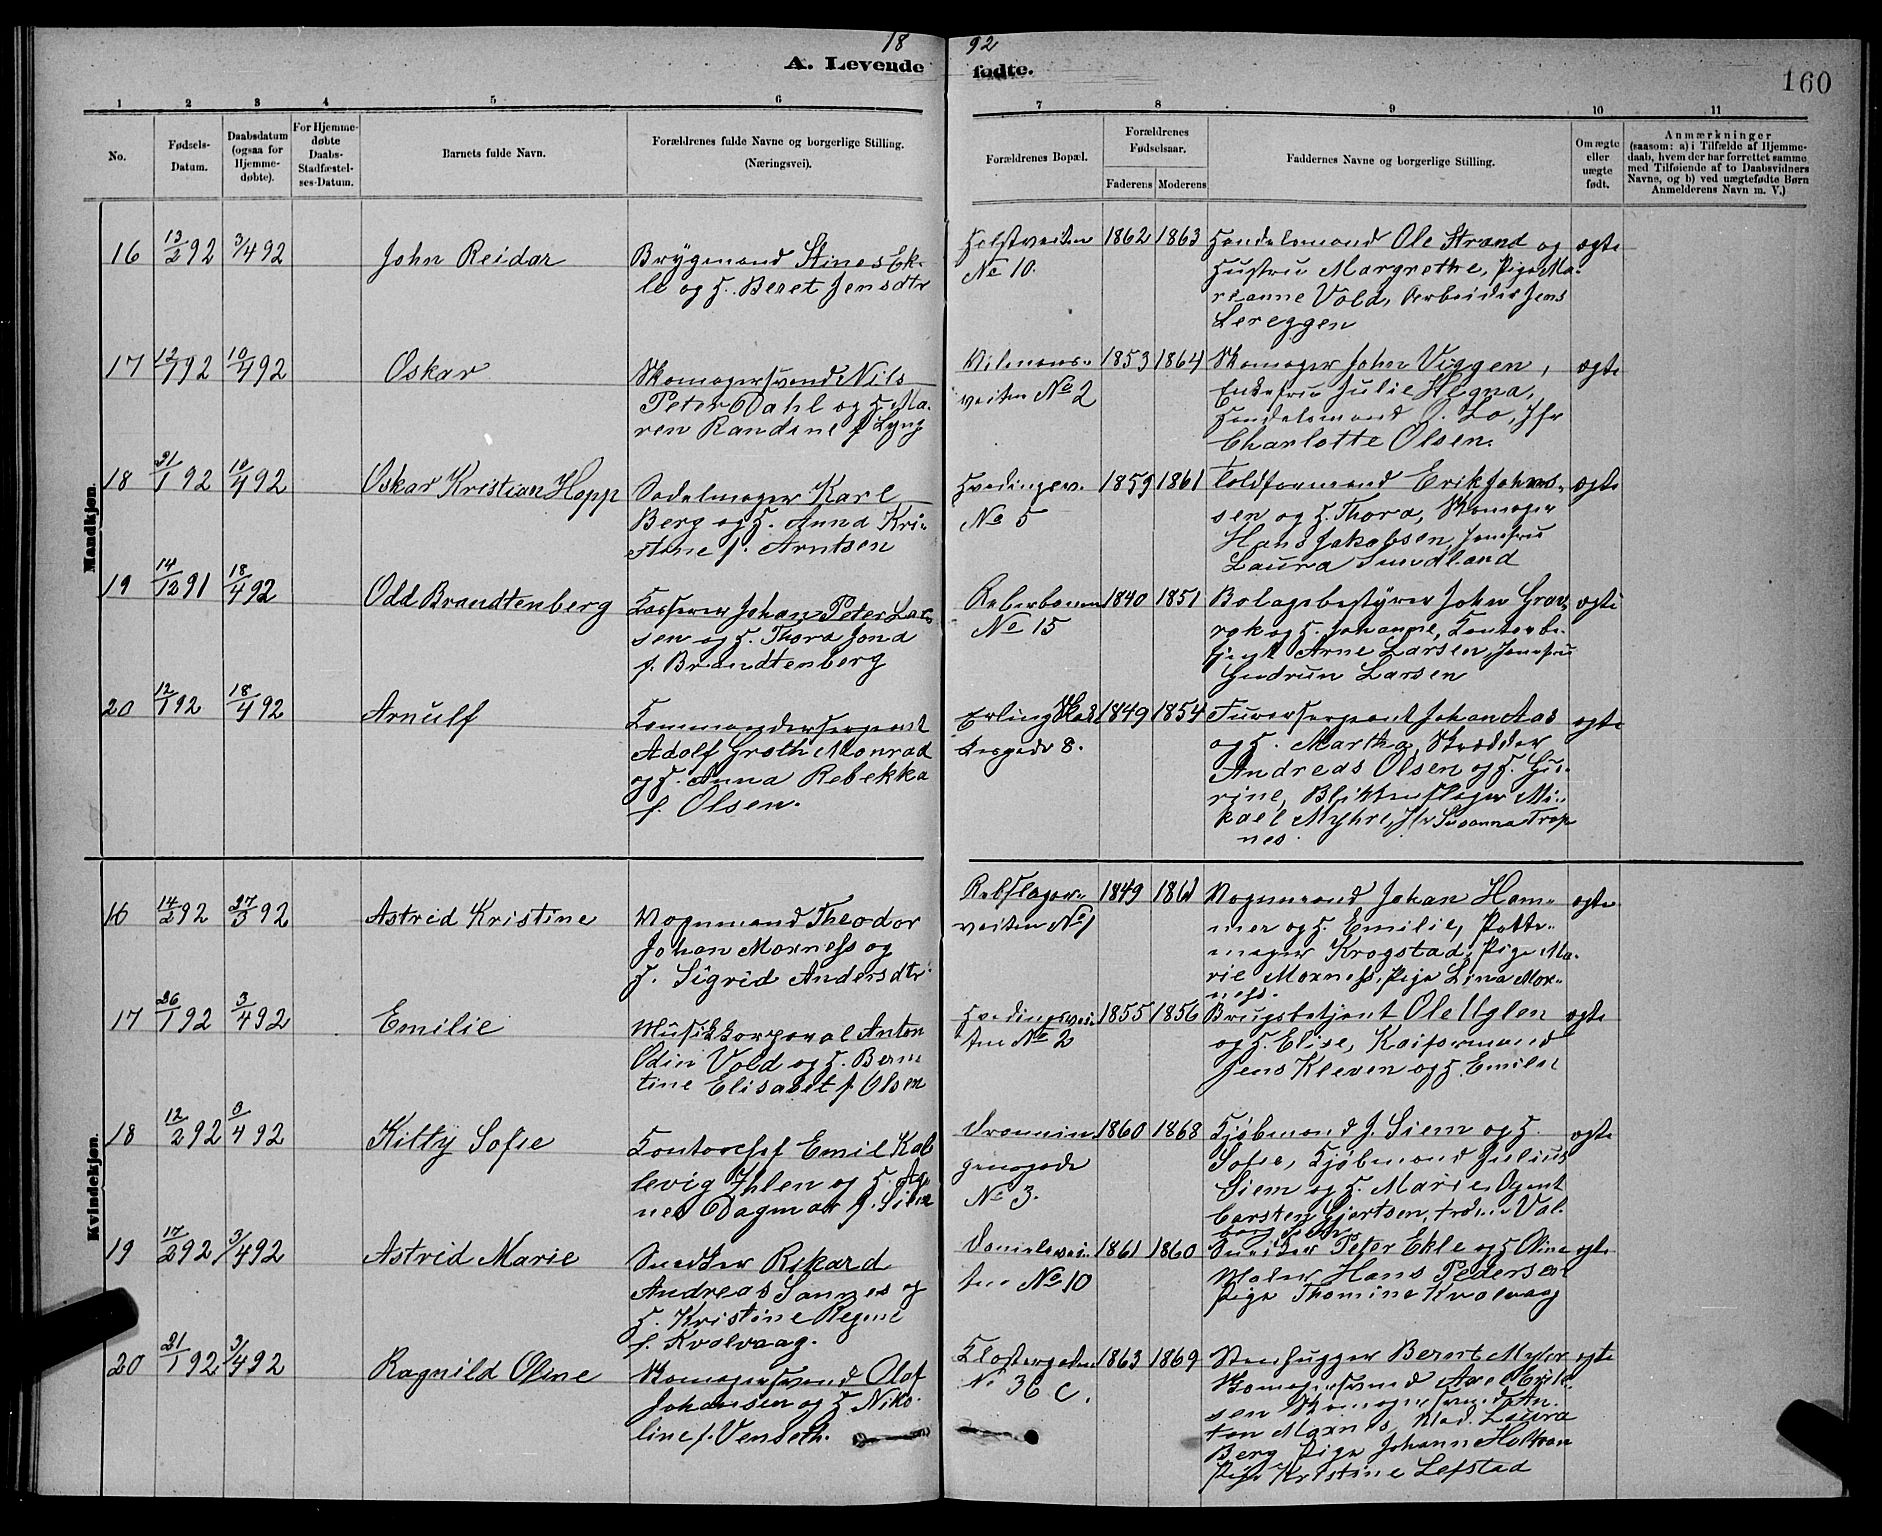 18 92
A. Levende fødte.
160
1 2 3 4 5 6 7 8 9 10 11
No.
Fødsels-
Datum.
Daabsdatum
(ogsaa for
Hjemme-
døbte).
For Hjemme-
døbte
Daabs-
Stadfæstel-
ses-Datum.
Barnets fulde Navn.
Forældrenes fulde Navne og borgerlige Stilling.
(Næringsvei).
Forældrenes Bopæl.
Forældrenes
Fødselsaar.
Faderens Moderens
Faddernes Navne og borgerlige Stilling.
Om ægte
eller
uægte
født.
Anmærkninger
(saasom: a) i Tilfælde af Hjemme-
daab, hvem der har forrettet samme
med Tilføiende af to Daabsvidners
Navne, og b) ved uægtefødte Børn
Anmelderens Navn m. V.)
Mandkjøn.
16 13/2 92 3/4 92 John Reidar
Brygmand Stines Ek-
le og H. Beret Jensdtr
Holstveiten
No 10.
1862 1863
Handelsmand Ole Strand og
Hustru Margrethe, Pige Ma-
rianne Vold, Arbeider Jens
Lereggen
ægte
17 12/1 92 10/4 92 Oskar
Skomagersvend Nils
Peter Dahl og H. Ma-
ren Randine f. Lyng
veiten No 2
1853 1864
Skomager John Viggen,
Enkefru Julie Hegna,
Handelsmand O. Lo, Jfr
Charlotte Olsen.
ægte
18 31/1 92 10/4 92 Oskar Kristian Hopp
Sadelmager Karl
Berg og H. Anna Kri-
stine f. Arntsen
Hvedingsv.
No 5
1859 1861
Toldformand Erik Johns-
sen og H. Thora, Skomager
Hans Jakobsen, Jomfru
Laura Sundland
ægte
19 14/12 91 18/4 92 Odd Brandtenberg
Kasserer Johan Peter Lar-
sen og H. Thora Jona
f. Brandtenberg
Reberbanen
No 15
1840 1851
Bolagsbestyrer John Grav-
rok og H. Johanne, Kontorbe-
tjent Arne Larsen, Jomfru
Gudrun Larsen
ægte
20 12/1 92 18/4 92 Arnulf
Kommandersergeant
Adolf Groth Monrad
og H. Anna Rebekka
f. Olsen.
Erling Skak-
kesgade 8.
1849 1854
Furersergeant Johan Aas
og H. Martha, Skrædder
Andreas Olsen og H. Gu-
rine, Blikkenslager Mi-
kael Myhre, Jfr Susanna Trap
nes.
ægte
Kvindekjøn.
16 14/2 92 27/3 92 Astrid Kristine
Vognmand Theodor
Johan Morness og
H. Sigrid Andersdtr.
Rebslager-
veiten No 1
1849 1861
Vognmand Johan Ham-
mer og H. Emilie, Potte-
mager Krogstad, Pige Ma-
rie Morness, Pige Lina Mor-
ness.
ægte
17 26/1 92 3/4 92 Emilie
Musikkorporal Anton
Odin Vold og H. Bern
tine Elisabet f. Olsen
Hvedingsvei-
ten No 2
1855 1856
Brugsbetjent Ole Uglen
og H. Elise, Kaiformand
Jens Kleven og H. Emilie
ægte
18 12/2 92 3/4 92 Kitty Sofie
Kontorchef Emil Kol
levig Ihlen og H. Ag-
nes Dagmar f. Siem
Dronnin-
gensgade
No 3.
1860 1868
Kjøbmand J. Siem og H.
Sofie, Kjøbmand Julius
Siem og H. Marie, Agent
Carsten Gjertsen, Val-
borg
ægte
19 17/2 92 3/4 92 Astrid Marie
Snedker Rikard
Andreas Sannes og
H. Kristine Regine
f. Kvalvaag.
Danielsvei-
ten No 10
1861 1860
Snedker Peter Ekle og H. Oline
Maler Hans Pedersen
Pige Thomine Kvalvaag
ægte
20 21/1 92 3/4 92 Ragnild Oline
Skomagersvend Olaf
Johansen og H. Niko-
line f. Venseth.
Klostergaden
No 36 C.
1863 1869
Stenhugger Bernt Myhr
Skomagersvend
sen Skomagersvend An-
ton Marnes, Mad. Laura
Berg Pige Johanna Holtvan
Pige Kristine Lefstad
ægte